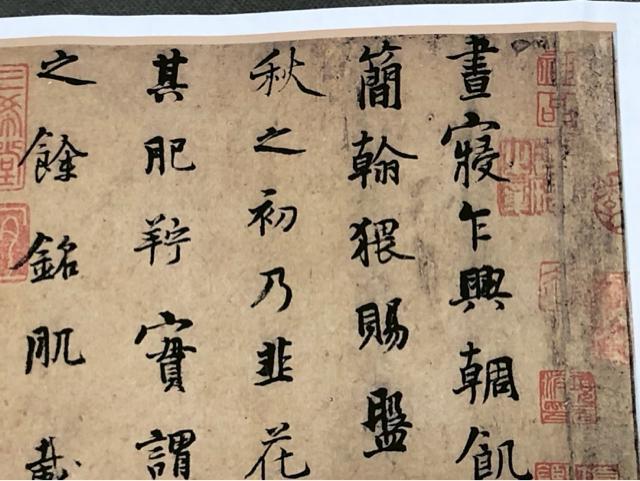 晝寢乍興輖飢
簡翰猥賜盤
秋之初乃韭花
其肥羜實謂
之餘銘肌載
三希堂